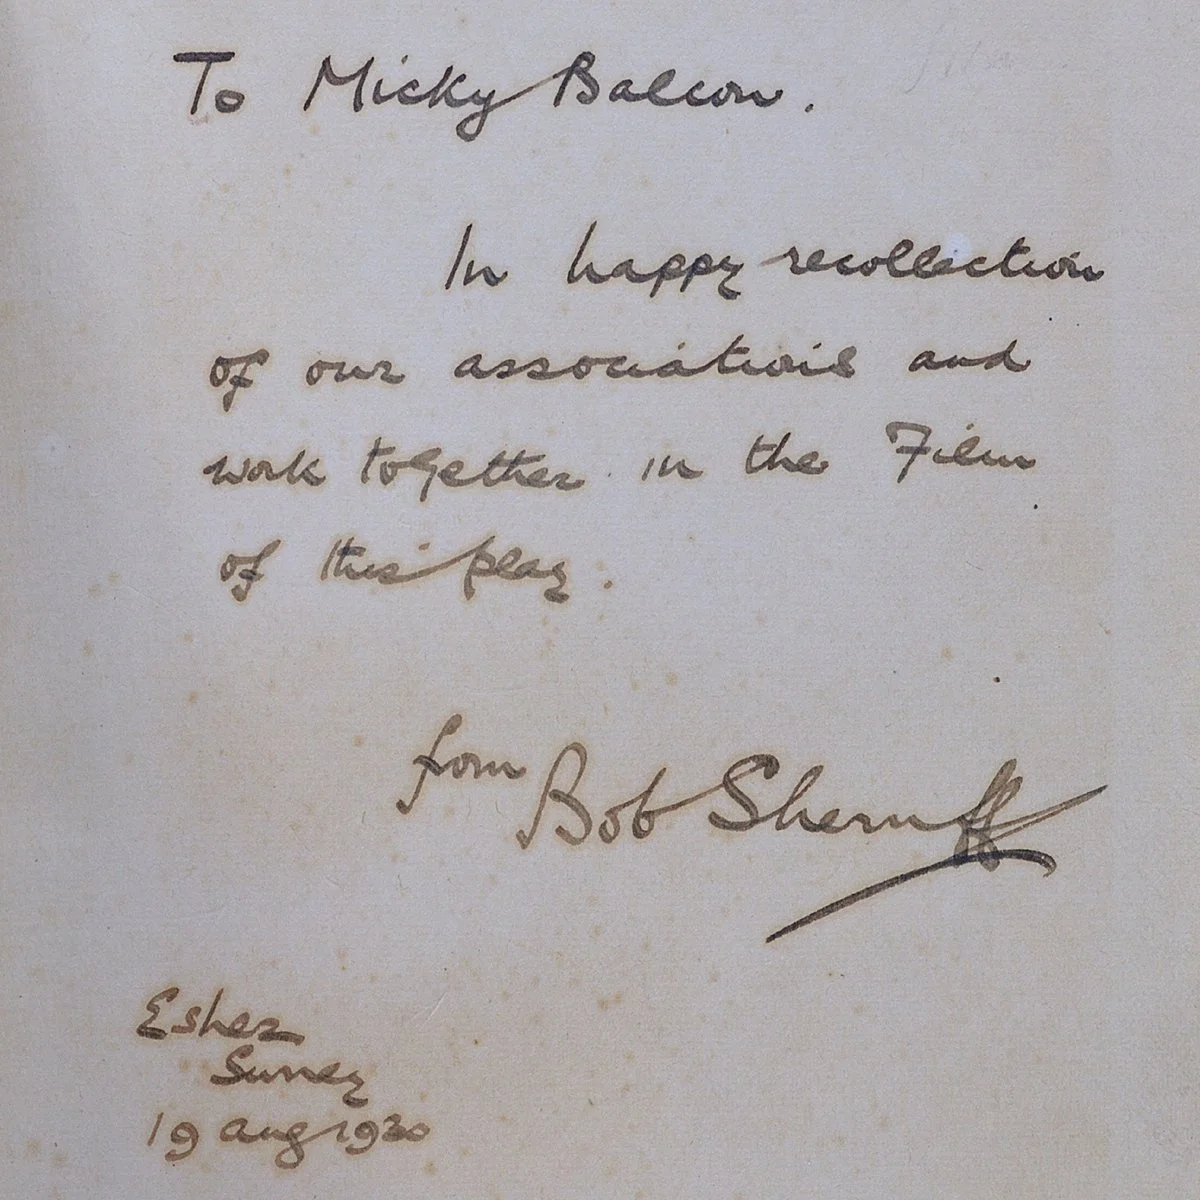 To Micky Balcon.
In happy recollection
of our associations and
work together in the Film
of this play.
from Bob Sherriff
Esher
Surrey
19 Aug 1930